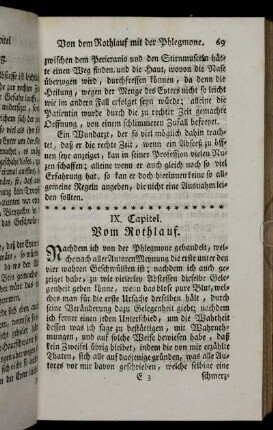 Von dem Rothlauf mit der Phlegmone. 69
zwischen dem Pericranio und den Stirnmuskeln hät-
te einen Weg finden, und die Haut, wovon die Nase
überzogen wird, durchfressen können, da denn die
Heilung, wegen der Menge des Eyters nicht so leicht
wie im andern Fall erfolget seyn würde; alleine die
Patientin wurde durch die zu rechter Zeit gemachte
Oeffnung, von einem schlimmern Zufall befreyet.
Ein Wundarzt, der so viel möglich dahin trach-
tet, daß er die rechte Zeit, wenn ein Absceß zu öff-
nen seye anzeiget, kan in seiner Profession vielen Nu-
zen schaffen; alleine wenn er auch gleich noch so viel
Erfahrung hat, so kan er doch hierinnen keine so all-
gemeine Regeln angeben, die nicht eine Ausnahm lei-
den sollten.
IX. Capitel.
Vom Rothlauf.
Nachdem ich von der Phlegmone gehandelt, wel-
che nach aller Autoren Meynung die erste unter den
vier wahren Geschwülsten ist; nachdem ich auch ge-
zeiget habe, zu wie vielerley Abscessen dieselbe Gele-
genheit geben könne, wenn das bloß pure Blut, wel-
ches man für die erste Ursache derselben hält, durch
seine Veränderung dazu Gelegenheit giebt; nachdem
ich ferner einen jeden Unterschied, um die Wahrheit
dessen was ich sage zu bestättigen, mit Wahrneh-
mungen, und auf solche Weise bewiesen habe, daß
kein Zweifel übrig bleibet, indem die von mir erzählte
Thaten, sich alle auf dasjenige gründen, was alle Au-
tores vor mir davon geschrieben, welche selbige eine
E 3 schmerz-